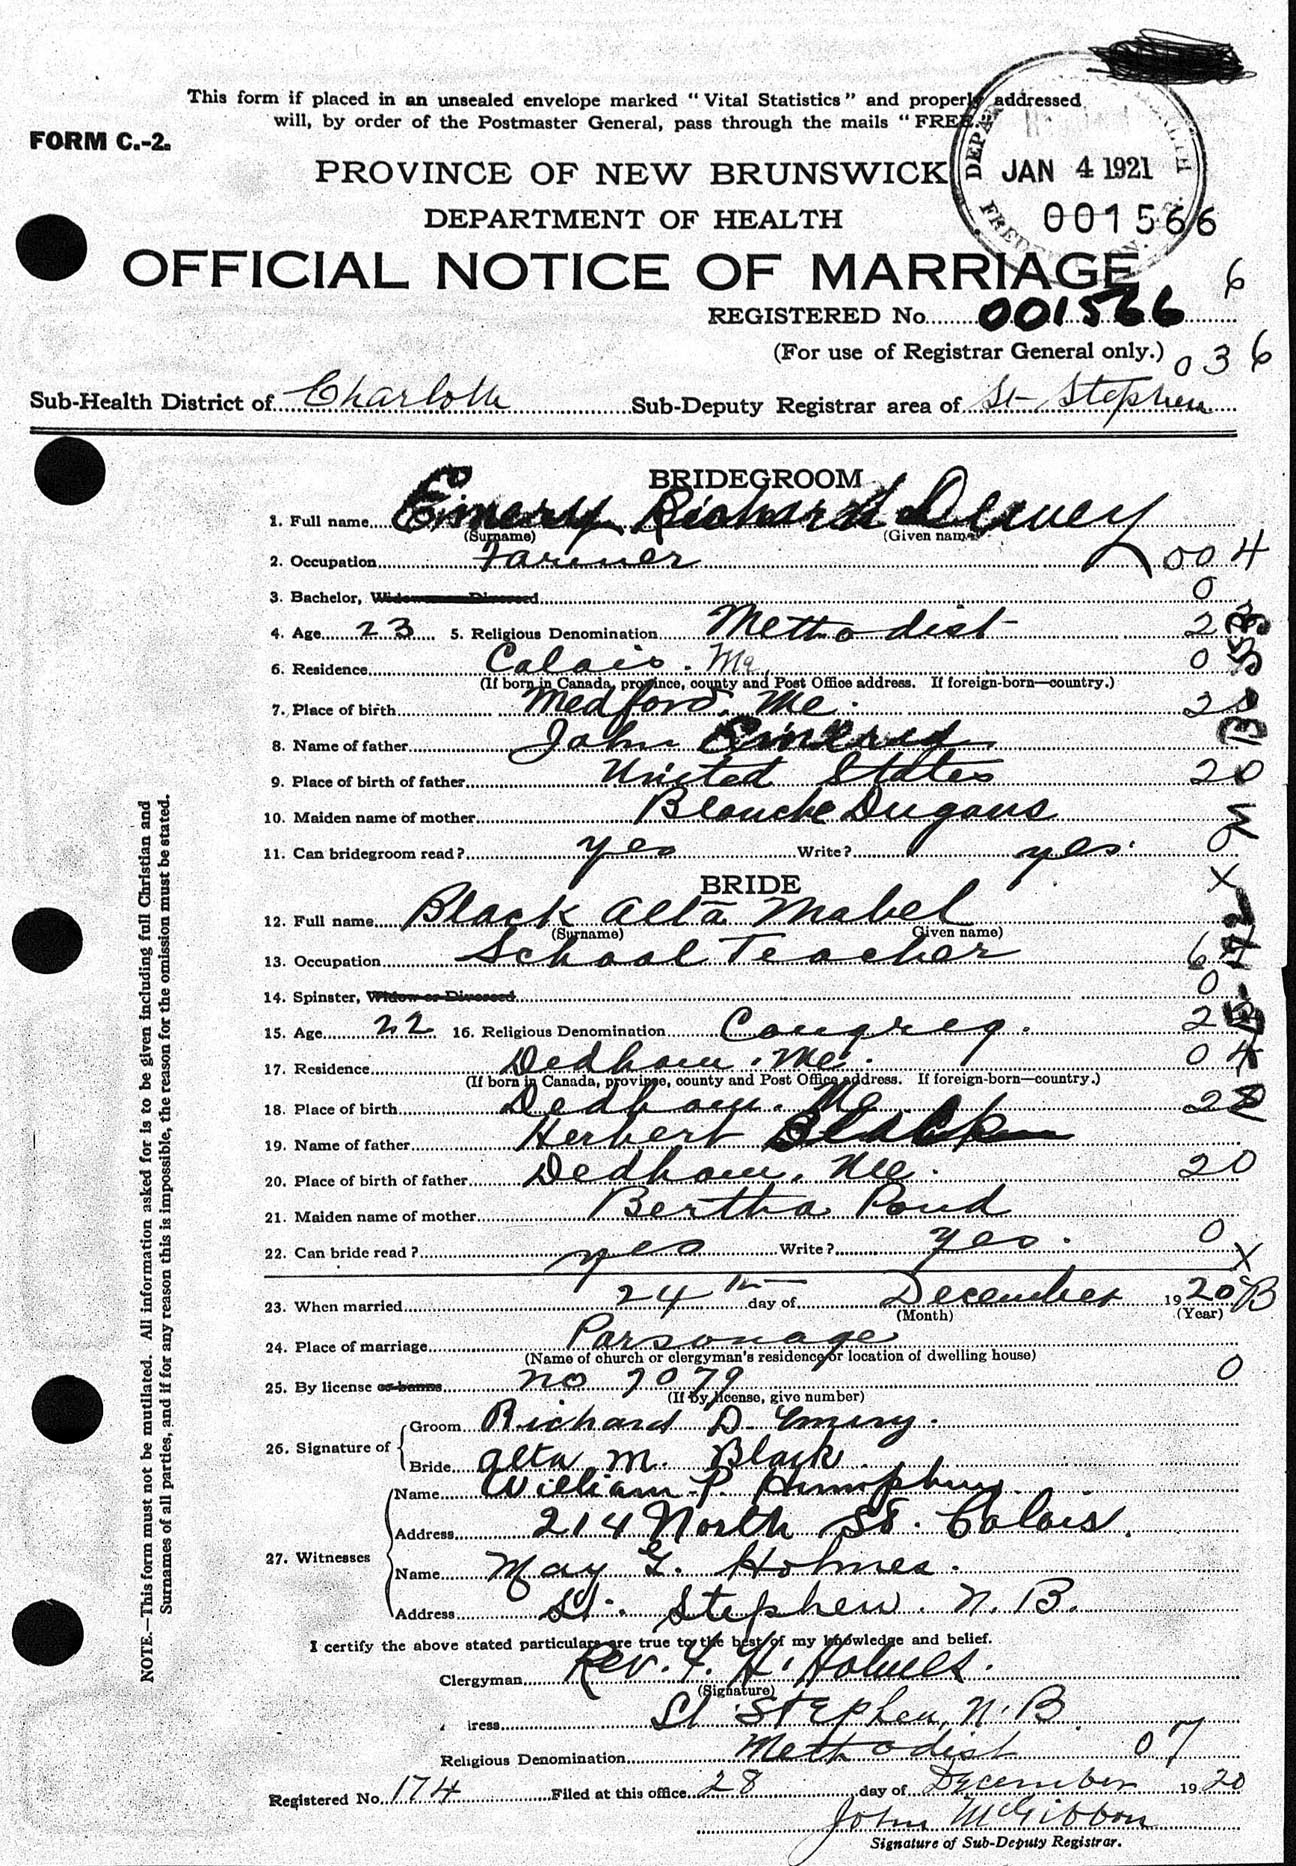 This form if placed in an unsealed envelope marked "Vital Statistics" and properly addressed
will, by order of the Postmaster General, pass through the mails "FREE."
FORM C.-2.
PROVINCE OF NEW BRUNSWICK
JAN 4 1921
001566
DEPARTMENT OF HEALTH
OFFICIAL NOTICE OF MARRIAGE
6
REGISTERED No. 001566
(For use of Registrar General only.) 036
Sub-Health District of Charlotte Sub-Deputy Registrar area of St Stephen
BRIDEGROOM
1. Full name Emery Richard Dewey
(Surname) (Given name)
2. Occupation Farmer 004
3. Bachelor, Widower or Divorced 0
4. Age 23 5. Religious Denomination Methodist 2
6. Residence Calais. Me 0
(If born in Canada, province, county and Post Office address. If foreign-born—country.)
7. Place of birth Medford, Me. 20
8. Name of father John Emery
9. Place of birth of father United States 20
10. Maiden name of mother Blanche Dugans
11. Can bridegroom read? yes Write? yes. 0
BRIDE
12. Full name Black Alta Mabel
(Surname) (Given name)
13. Occupation School Teacher 6
14. Spinster, Widow or Divorced 0
15. Age 22 16. Religious Denomination Congreg. 2
17. Residence Dedham, Me. 0
(If born in Canada, province, county and Post Office address. If foreign-born—country.)
18. Place of birth Dedham. Me 2
19. Name of father Herbert Black
20. Place of birth of father Dedham, Me. 20
21. Maiden name of mother Bertha Pond
22. Can bride read? yes Write? yes. 0
X
23. When married 24th day of December 1920 B
(Month) (Year)
24. Place of marriage Parsonage
(Name of church or clergyman's residence or location of dwelling house)
25. By license or banns no 7079 0
(If by license, give number)
26. Signature of Groom Richard D. Emery.
Bride Alta M. Black.
27. Witnesses Name William P. Humphrey
Address 214 North St. Calais.
Name May G. Holmes.
Address St. Stephen. N. B.
I certify the above stated particulars are true to the best of my knowledge and belief.
Clergyman Rev. H. Holmes.
(Signature)
ress St Stephen, N. B.
Religious Denomination Methodist 07
Registered No. 174 Filed at this office 28 day of December 1920
John McGibbon
Signature of Sub-Deputy Registrar.
NOTE.—This form must not be mutilated. All information asked for is to be given including full Christian and
Surnames of all parties, and if for any reason this is impossible, the reason for the omission must be stated.